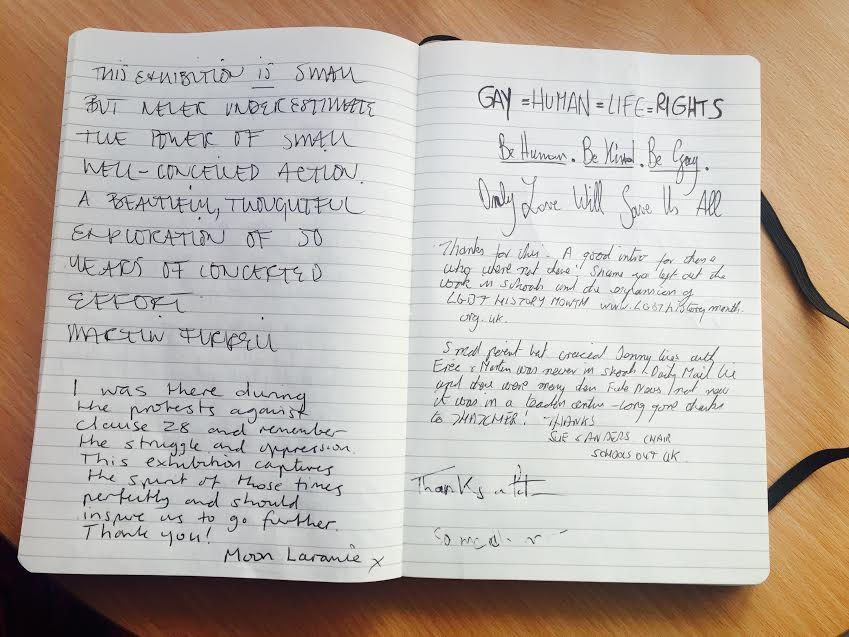 THIS EXHIBITION IS SMALL
BUT NEVER UNDERESTIMATE
THE POWER OF SMALL
WELL-CONCEIVED ACTION.
A BEAUTIFUL, THOUGHTFUL
EXPLORATION OF 50
YEARS OF CONCERTED
EFFORT
MARTIN
I was there during
the protests against
Clause 28 and remember
the struggle and oppression.
This exhibition captures
the spirit of those times
perfectly and should
inspire us to go further.
Thank you!
Moon Laramie x
GAY = HUMAN = LIFE = RIGHTS
Be Human. Be Kind. Be Gay.
Only Love Will Save Us All
Thanks for this. A good intro for those
who were not there! Shame you left out the
work in schools and the expansion of
LGBT HISTORY MONTH www.LGBThistorymonth.
org.uk.
Small point but crucial Jenny lives with
Eric & Martin was never in schools. Daily Mail Lie
and there were many then Fake News not new
it was in a teachers centre - long gone thanks
to THATCHER! THANKS
SUE SANDERS CHAIR
SCHOOLS OUT UK.
Thanks